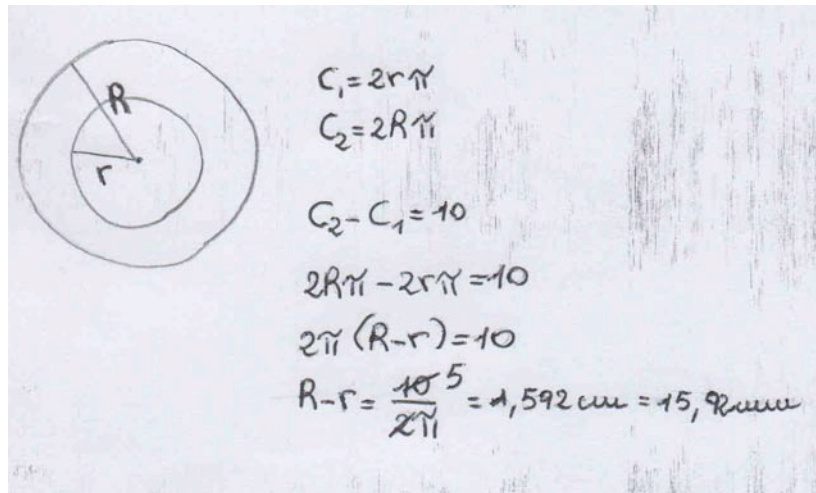 R
r
C₁=2rπ
C₂=2Rπ
C₂-C₁=10
2Rπ-2rπ=10
2π(R-r)=10
R-r=10 5/2π=1,592cm=15,92mm